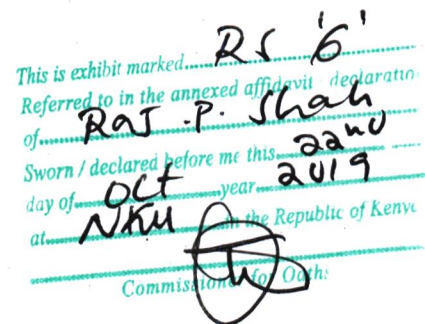 This is exhibit marked RS '6'
Referred to in the annexed affidavit declaratio
of Raj .P. Shah
Sworn / declared before me this 22nd
day of Oct year 2019
at NKU in the Republic of Kenya
Commissioner for Oaths